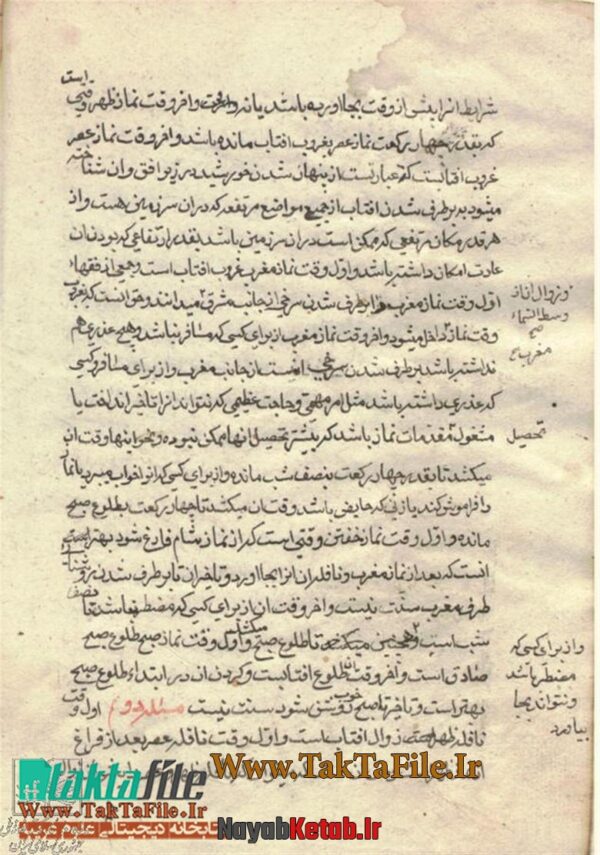 است
شرایط انرا پیش از وقت بجا اورده باشد یا نه و اخر وقت نماز ظهر وقتی
که بقدر چهار رکعت نماز عصر بغروب افتاب مانده باشد و اخر وقت نماز عصر
غروب افتابست که عبارتست از پنهان شدن خورشید در زیر افق و ان شناخته
میشود به برطرف شدن افتاب از جمیع مواضع مرتفعه که در ان سرزمین هست و از
هر قدر مکان مرتفعی که ممکن است در ان سرزمین باشد بقدر ارتفاعی که بودن ان
عادت امکان داشته باشد و اول وقت نماز مغرب غروب افتاب است و جمعی از فقهاء
اول وقت نماز مغرب را برطرف شدن سرخی از جانب مشرق میدانند و حق انست که بغروب
وقت نماز داخل میشود و اخر وقت نماز مغرب از برای کسی که مسافر نباشد و هیچ عذری هم
نداشته باشد برطرف شدن سرخی است از جانب مغرب و از برای مسافر و کسی
که عذری داشته باشد مثل امر مهمی و حاجت عظیمی که نتواند انرا تاخیر انداخت یا
مشغول مقدمات نماز باشد که پیشتر تحصیل انها ممکن نبوده و نحو اینها وقت ان
میکشد تا بقدر چهار رکعت بنصف شب مانده و از برای کسی که انرا خواب ببرد یا نماز
را فراموش کند یا زنی که حایض باشد وقت ان میکشد تا چهار رکعت بطلوع صبح
مانده و اول وقت نماز خفتن وقتی است که از نماز شام فارغ شود بهتر
انست که بعد از نماز مغرب و نافله ان انرا بجا اورد و تاخیر ان تا برطرف شدن
طرف مغرب سنت نیست و اخر وقت ان از برای کسی که مضطر نباشد تا نصف
شب است و همچنین میکشد تا طلوع صبح و اول وقت نماز صبح طلوع صبح
صادق است و اخر وقت ان طلوع افتابست و کردن ان در ابتداء طلوع صبح
بهتر است و تاخیر تا صبح خوب روشن شود سنت نیست مسئله دوم اول وقت
نافله ظهر زوال افتاب است و اول وقت نافله عصر بعد از فراغ
و زوال ان از
وسط السماء
صح
مغرب
تحصیل
و از برای کسی که
مضطر باشد
و نتواند بجا
بیاورد
Taktafile
Www.TakTaFile.Ir
Www.TakTaFile.Ir
کتابخانه دیجیتالی علوم غریبه
NayabKetab.Ir